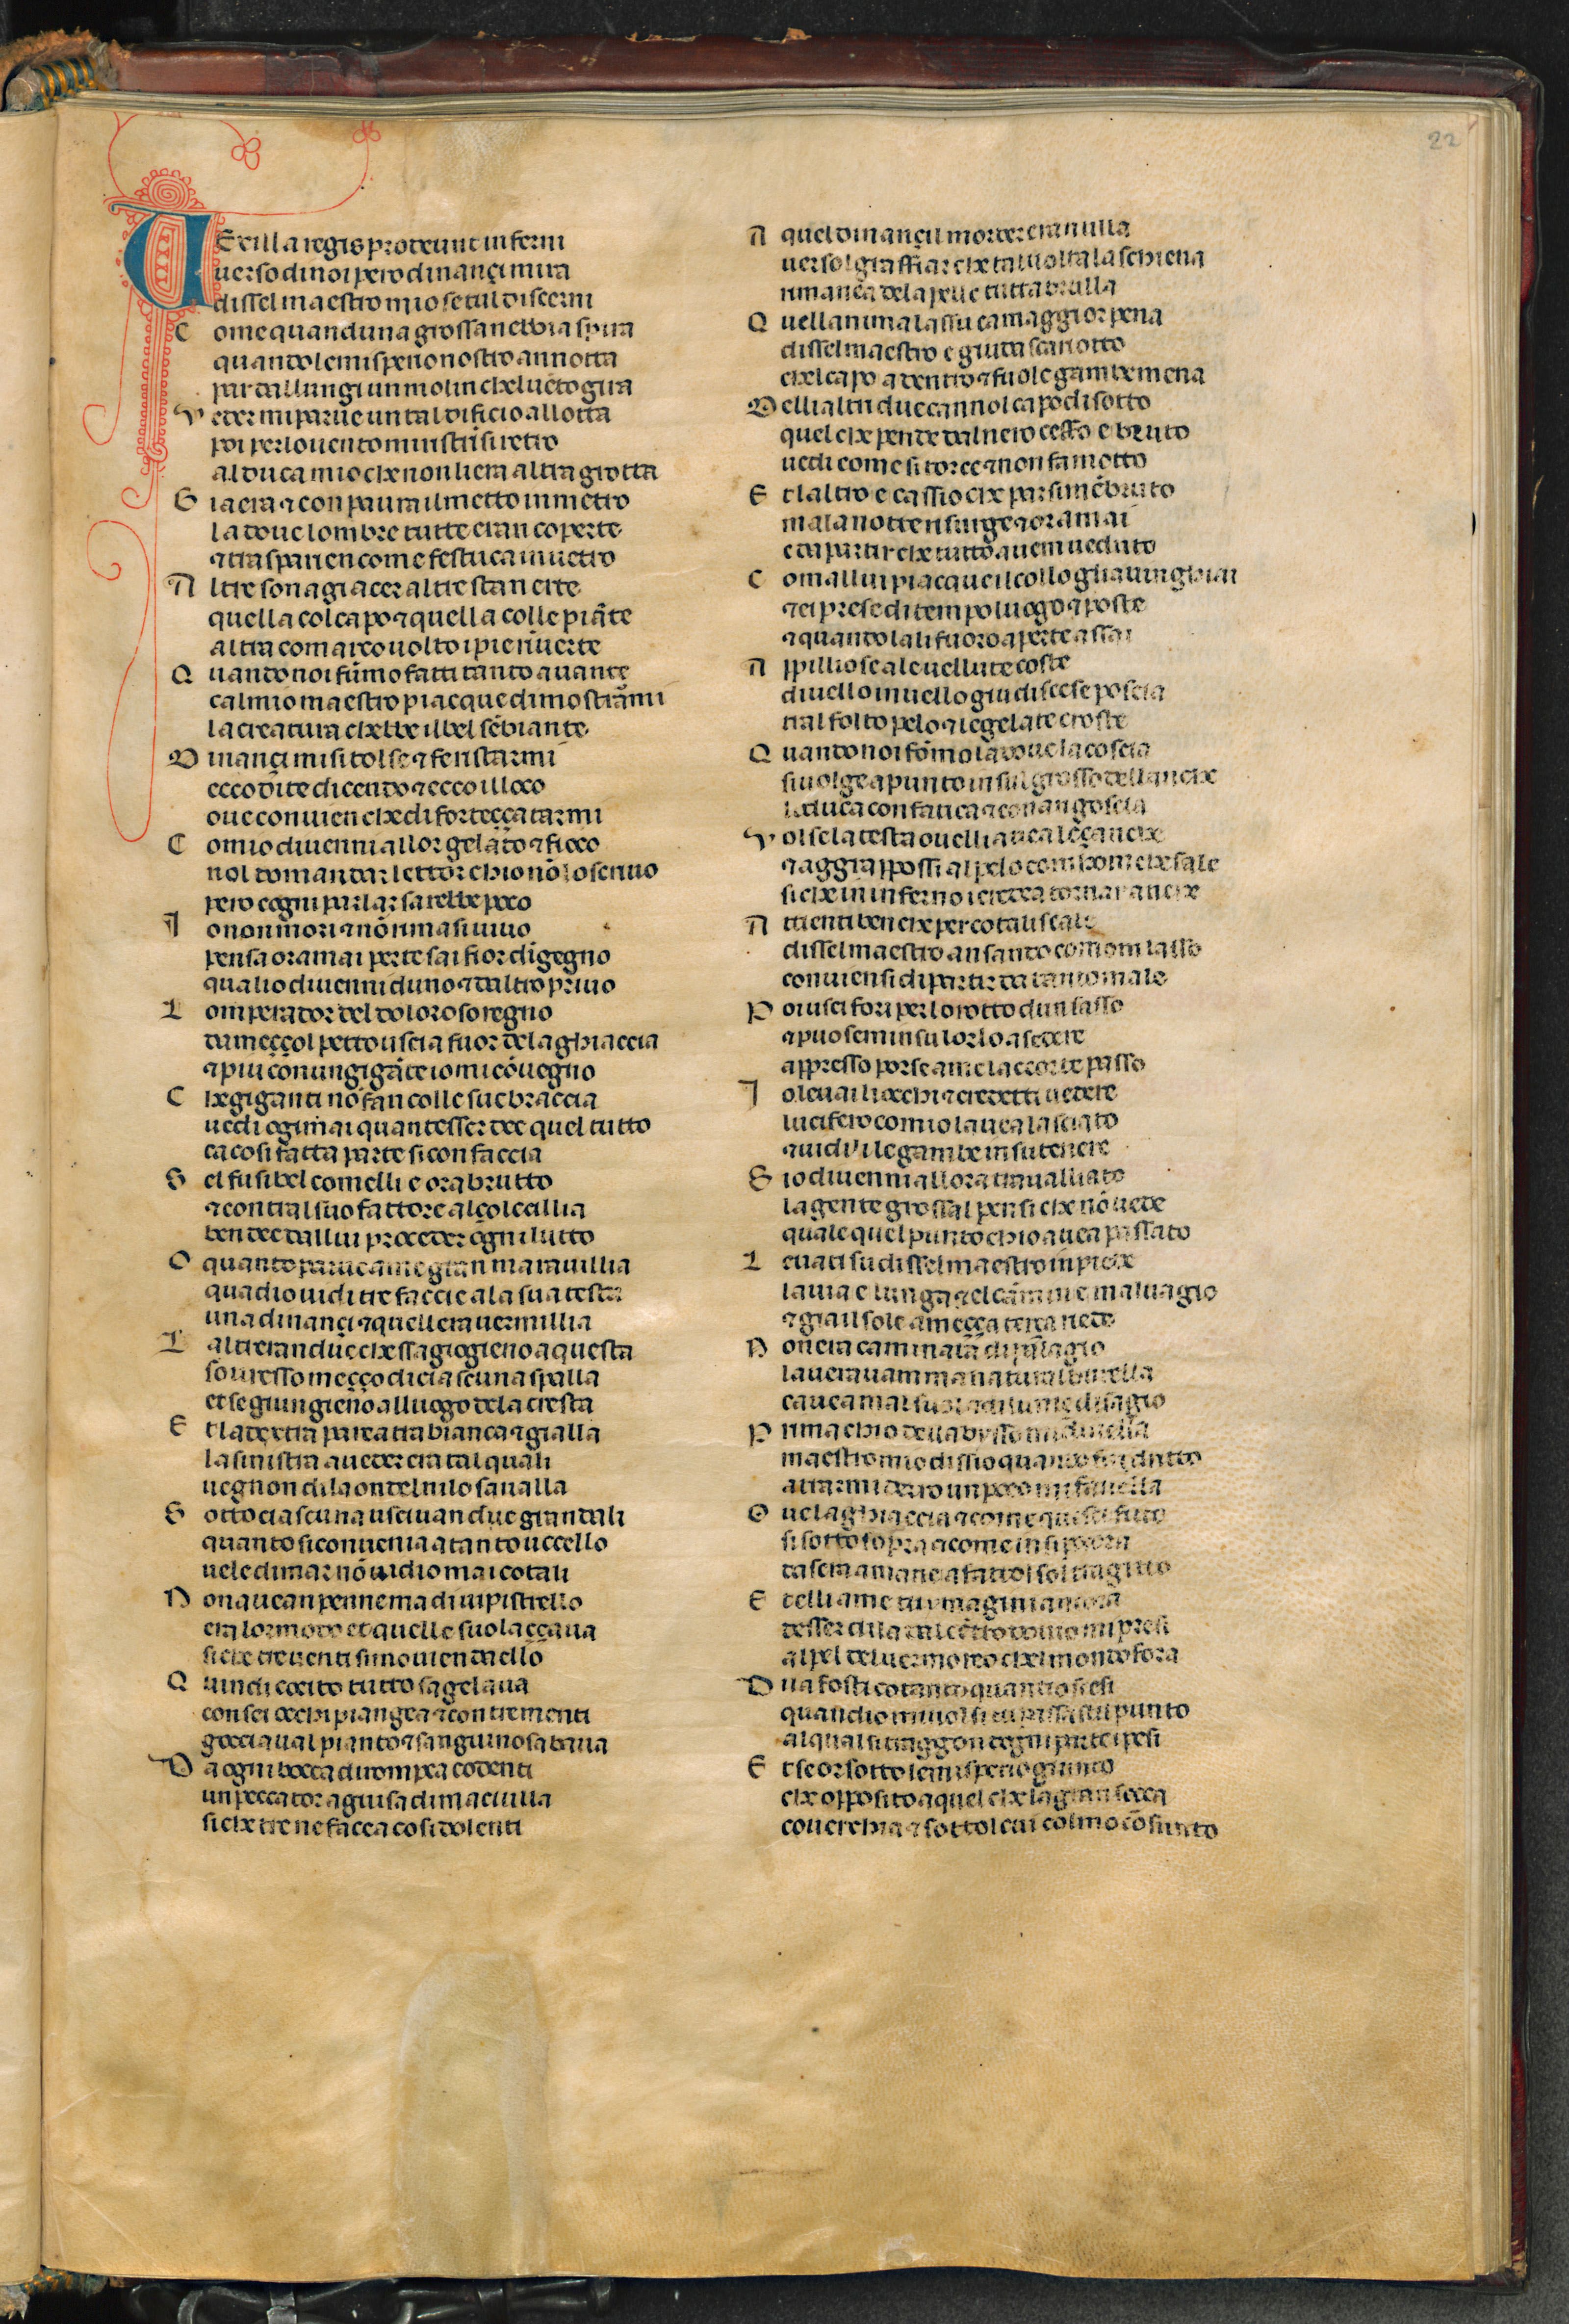 22
VExilla regis prodeunt inferni
uerso di noi pero dinançi mira
dissel maestro mio setul discerni
C ome quanduna grossa nebbia spira
quando lemisperio nostro annotta
par dallungi un molin chel uēto gira
V eder mi parue un tal dificio allotta
poi per lo uento mi ristrīsi retro
al duca mio che non liera altra grotta
G ia era ⁊ con paura il metto in metro
la doue lombre tutte eran coperte
⁊ trasparien come festuca in uetro
A ltre son a giacer altre stan erte
quella col capo ⁊ quella colle piāte
altra comarco uolto i pie rīuerte
Q uando noi fūmo fatti tanto auante
cal mio maestro piacque di mostrāmi
la creatura chebbe il bel sēbiante
D inançi mi si tolse ⁊ fe ristarmi
ecco dite dicendo ⁊ ecco il loco
oue conuien che di forteçça tarmi
C omio diuenni allor gelato ⁊ fioco
nol domandar lettor chio nō lo scriuo
pero cogni parlar sarebbe poco
I o non mori ⁊ nō rimasi uiuo
pensa oramai per te sai fior dīgegno
qualio diuenni duno ⁊ daltro priuo
L omperador del doloroso regno
da meççol petto uscia fuor de la ghiaccia
⁊ piu con un gigāte io mi cōuegno
C he giganti nō fan colle sue braccia
uedi ogimai quantesser dee quel tutto
ca cosi fatta parte si confaccia
S el fu si bel comelli e ora brutto
⁊ contral suo fattore alço le cillia
ben dee dallui proceder ogni lutto
O quanto parue a me gran marauillia
quadio uidi tre faccie a la sua testa
una dinançi ⁊ quellera uermillia
L altreran due che ssagiogieno a questa
souresso meçço di ciascuna spalla
et se giungieno alluogo de la cresta
E t la destra parea tra bianca ⁊ gialla
la sinistra a ueder era tal quali
uegnon di la ondel nilo saualla
S otto ciascuna usciuan due grandali
quanto si conuenia a tanto uccello
uele di mar nō uidio mai cotali
N on auean penne ma di uipistrello
era lor modo et quelle suolaççaua
si che tre uenti si mouien da ello
Q uindi cocito tutto sagelaua
con sei occhi piangea ⁊ con tre menti
gocciaual pianto ⁊ sanguinosa baua
D a ogni bocca dirompea co denti
un peccator a guisa di maciulla
si che tre ne facea cosi dolenti
A quel dinançi il morder era nulla
uersol graffiar che taluolta la schiena
rimanea de la pelle tutta brulla
Q uellanima lassu ca maggior pena
dissel maestro e giuda scariotto
chel capo a dentro ⁊ fuo le gambe mena
D elli altri due cannol capo di sotto
quel che pende dal nero ceffo e bruto
uedi come si torce ⁊ non fa motto
E t laltro e cassio che par sī mēbruto
ma la notte risurge ⁊ oramai
e da partir che tutto auem ueduto
C omallui piacque il collo gli auinghiai
⁊ ei prese di tempo luogo ⁊ poste
⁊ quando lali fuoro aperte assai
A ppillio se a le uellute coste
di uello in uello giu discese poscia
tral folto pelo ⁊ le gelate croste
Q uando noi fōmo la doue la coscia
si uolge a punto in sul grosso dellanche
lo duca con fatica ⁊ con angoscia
V olse la testa ouelli auea le çanche
⁊ aggrapposi al pelo comhom che sale
si che in inferno i credea tornar anche
A ttienti ben che per cotali scale
dissel maestro ansando comom lasso
conuiensi dipartir da tanto male
P oi usci fori per lo rotto dun sasso
⁊ puosemi in su lorlo a sedere
appresso porse a me laccorto passo
I o leuai li occhi ⁊ credetti uedere
lucifero comio lauea lasciato
⁊ uidili le gambe in su tenere
S io diuenni allora trauaalliato
la gente grossal pensi che nō uede
quale quel punto chio auea passato
L euati su dissel maestro in piede
la uia e lunga ⁊ el cāmino e maluagio
⁊ gia il sole a meçça terça riede
N on era caminata di palagio
la uerauam ma natural burella
cauea mal suolo ⁊ di lume disagio
P rima chio dellabisso mi diuella
maestro mio dissio quando fui dritto
a trarmi derro un poco mi fauella
O ue la ghiaccia ⁊ come questi fitto
si sottosopra ⁊ come in si pocora
da sera a mane a fatto il sol tragitto
E t elli a me tu ymagini ancora
desser di la dal cētro douio mi presi
al pel del uermo reo chel mondo fora
D i la fosti cotanto quantio scesi
quandio mi uolsi tu passasti il punto
al qual si traggon dogni parte i pesi
E t se or sotto lemisperio giunto
che opposito a quel che la gran secca
couerchia ⁊ sottol cui colmo cōsunto